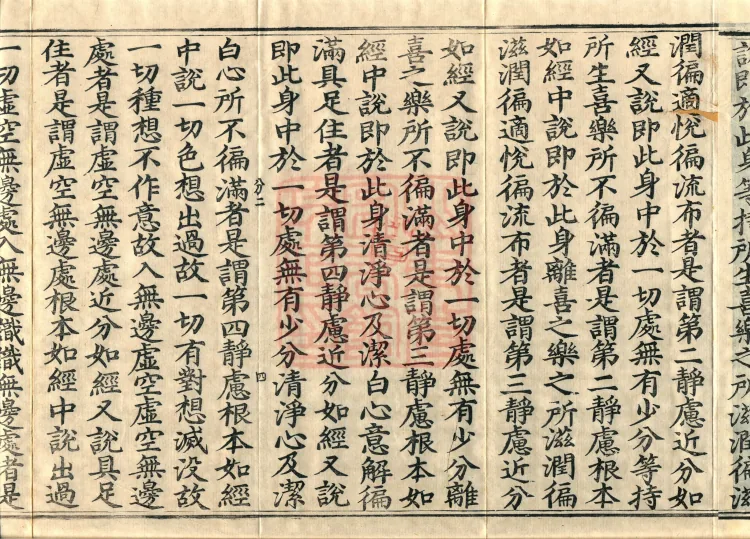 說即於此身等持所生喜樂之所滋潤徧滋
潤徧適悅徧流布者是謂第二靜慮近分如
經又說即此身中於一切處無有少分等持
所生喜樂所不徧滿者是謂第二靜慮根本
如經中說即於此身離喜之樂之所滋潤徧
滋潤徧適悅徧流布者是謂第三靜慮近分
如經又說即此身中於一切處無有少分離
喜之樂所不徧滿者是謂第三靜慮根本如
經中說即於此身清淨心及潔白心意解徧
滿具足住者是謂第四靜慮近分如經又說
即此身中於一切處無有少分清淨心及潔
分二 四
白心所不徧滿者是謂第四靜慮根本如經
中說一切色想出過故一切有對想滅没故
一切種想不作意故入無邊虛空虛空無邊
處者是謂虛空無邊處近分如經又說具足
住者是謂虛空無邊處根本如經中說出過
一切虛空無邊處入無邊識識無邊處者是